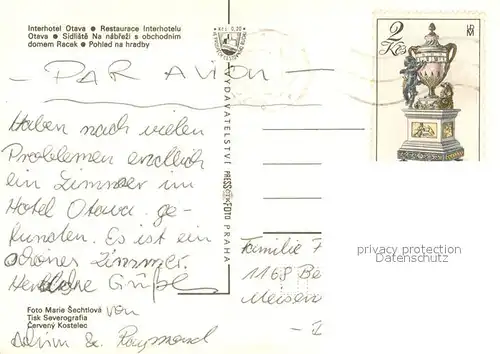 Interhotel Otava ● Restaurace Interhotelu
Otava ● Sídliště Na nábřeží s obchodním
domem Racek ● Pohled na hradby
Kčs 0,20
2
Kčs
- PAR AVION -
Haben nach vielen
Problemen endlich
ein Zimmer im
Hotel Otava ge-
funden. Es ist ein
schönes Zimmer.
Herzliche Grüße
von
& Raymond
VYDAVATELSTVÍ PRESSFOTO PRAHA
Familie
1168 Be
Meisen
privacy protection
Datenschutz
Foto Marie Šechtlová
Tisk Severografia
Červený Kostelec